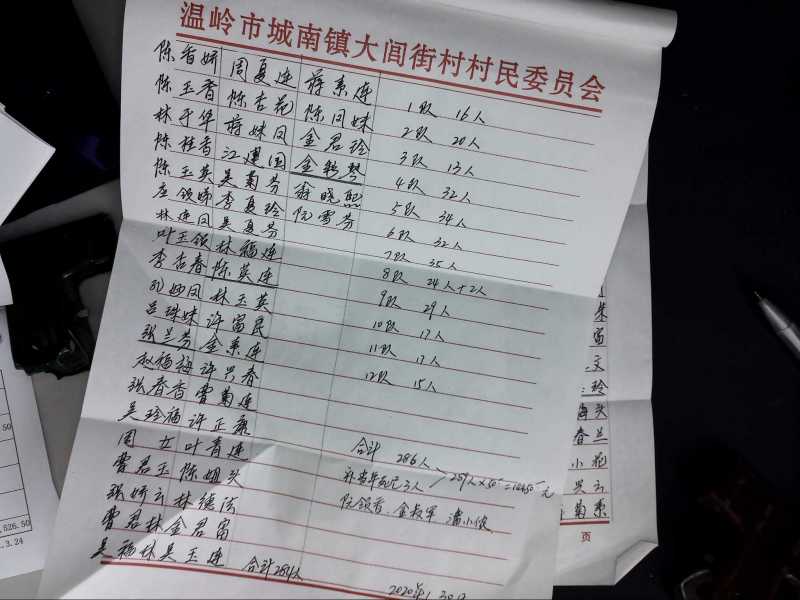 温岭市城南镇大闾街村村民委员会
陈香娇 周夏连 蒋素连
陈玉香 陈杏花 陈冈妹 1队 16人
林于华 蒋妹凤 金君玲 2队 20人
陈桂香 江建国 3队 13人
陈玉英 吴菊芬 翁晓熙 4队 32人
李夏玲 阮雪芬 5队 34人
林连凤 吴夏芬 6队 32人
叶玉领 林福连 7队 35人
李杏春 陈英连 8队 24人+2人
林玉英 9队 29人
吕珠妹 许富民 10队 17人
张兰芬 金素连 11队 17人
赵福梅 许兴春 12队 15人
张春香 曹菊连
吴珍福 许正
周女 叶青连 合计 286人
曹君玉 陈姐头 3人 289人×50
张娇云 林德法 阮领香、金叔军、潘小俊
曹君林 金君富
吴福林 吴玉连 合计289人
2020年1.30日
富
文
玲
海头
春兰
小花
兴云
菊素
页
526.50
.3.24